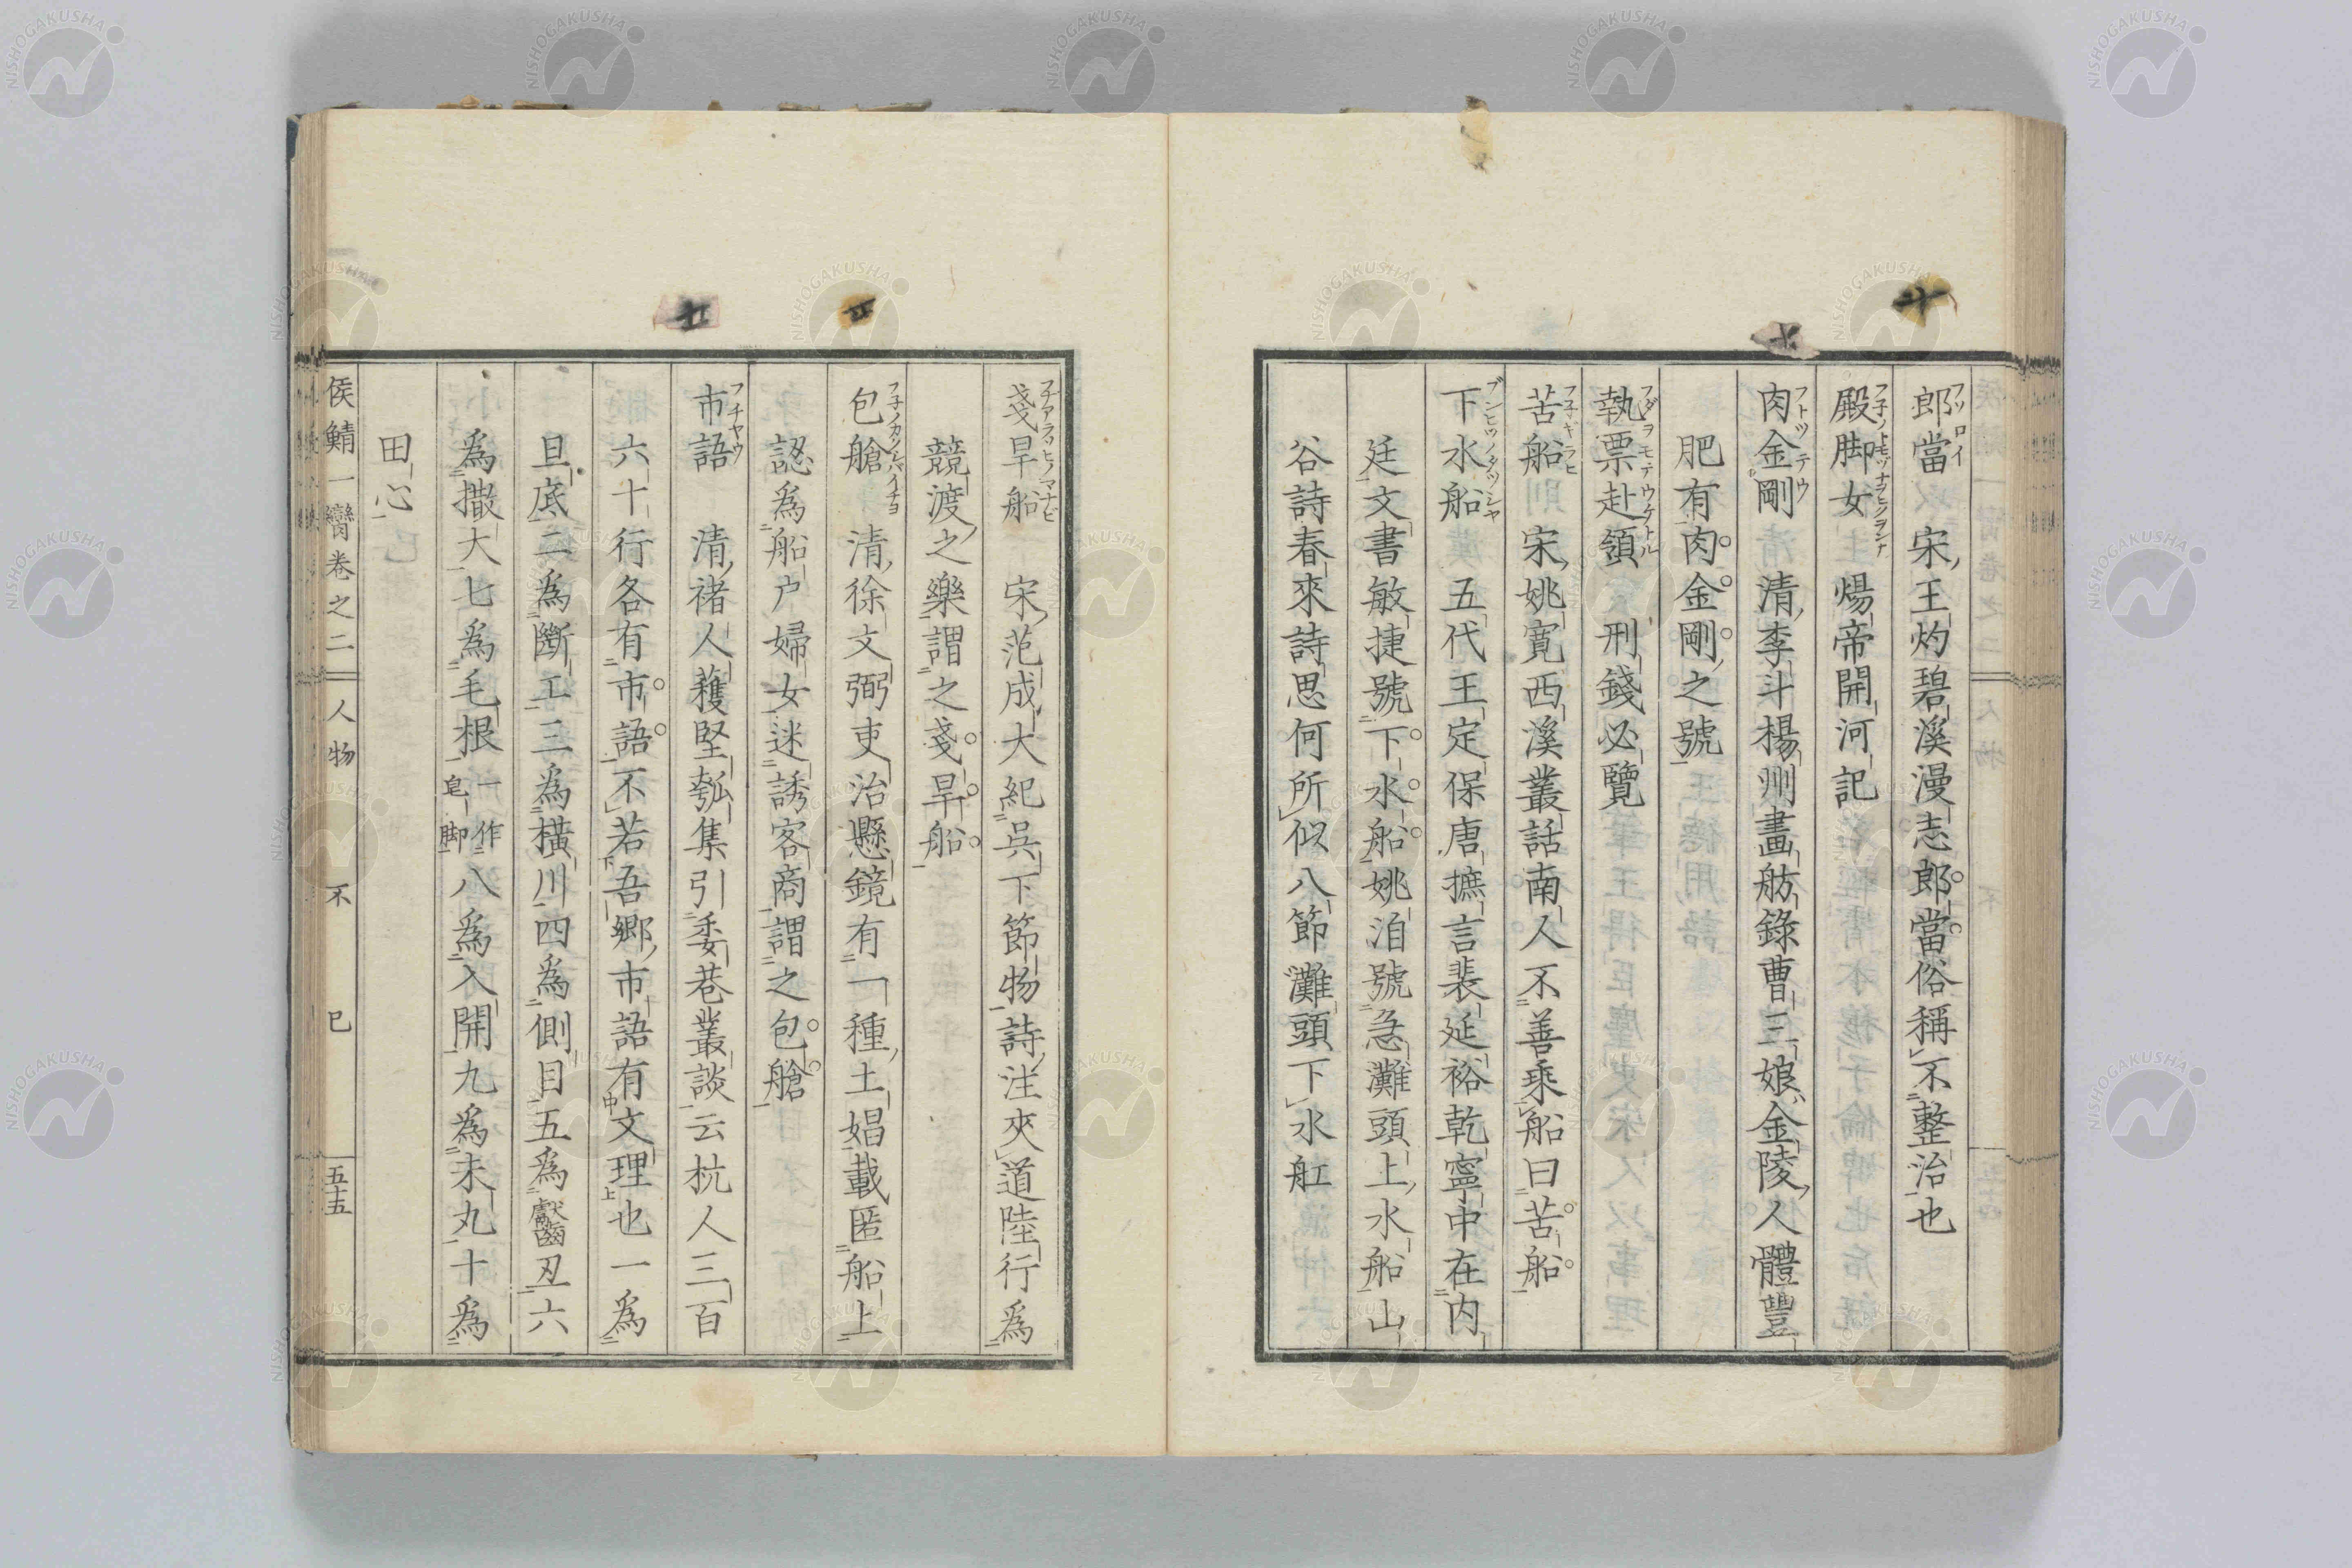 郎當 宋王灼碧溪漫志郎當俗稱不整治也
フソロイ
殿脚女 煬帝開河記
肉金剛 清李斗楊州畫舫錄曹三娘金陵人體豐
フトツテウ
肥有肉金剛之號
執票赴領 刑錢必覽
フダヲモテウケトル
苦船 宋姚寬西溪叢話南人不善乘船曰苦船
フ子ギラヒ
下水船 五代王定保唐摭言裴延裕乾寧中在内
廷文書敏捷號下水船姚洎號急灘頭上水船山
谷詩春來詩思何所似八節灘頭下水舡
戔旱船 宋范成大紀吳下節物詩注夾道陸行爲
競渡之樂謂之戔旱船
包艙 清徐文弼吏治懸鏡有一種土娼載匿船上
認爲船户婦女迷誘客商謂之包艙
市語 清褚人穫堅瓠集引委巷叢談云杭人三百
フチヤウ
六十行各有市語不若吾鄉市語有文理也一爲
旦底二爲斷工三爲橫川四爲側目五爲𪙉丑六
爲撒大七爲毛根一作皂脚八爲入開九爲未丸十爲
田心
侯鯖一臠卷之二 人物 不 巳 五十五
NISHOGAKUSHA